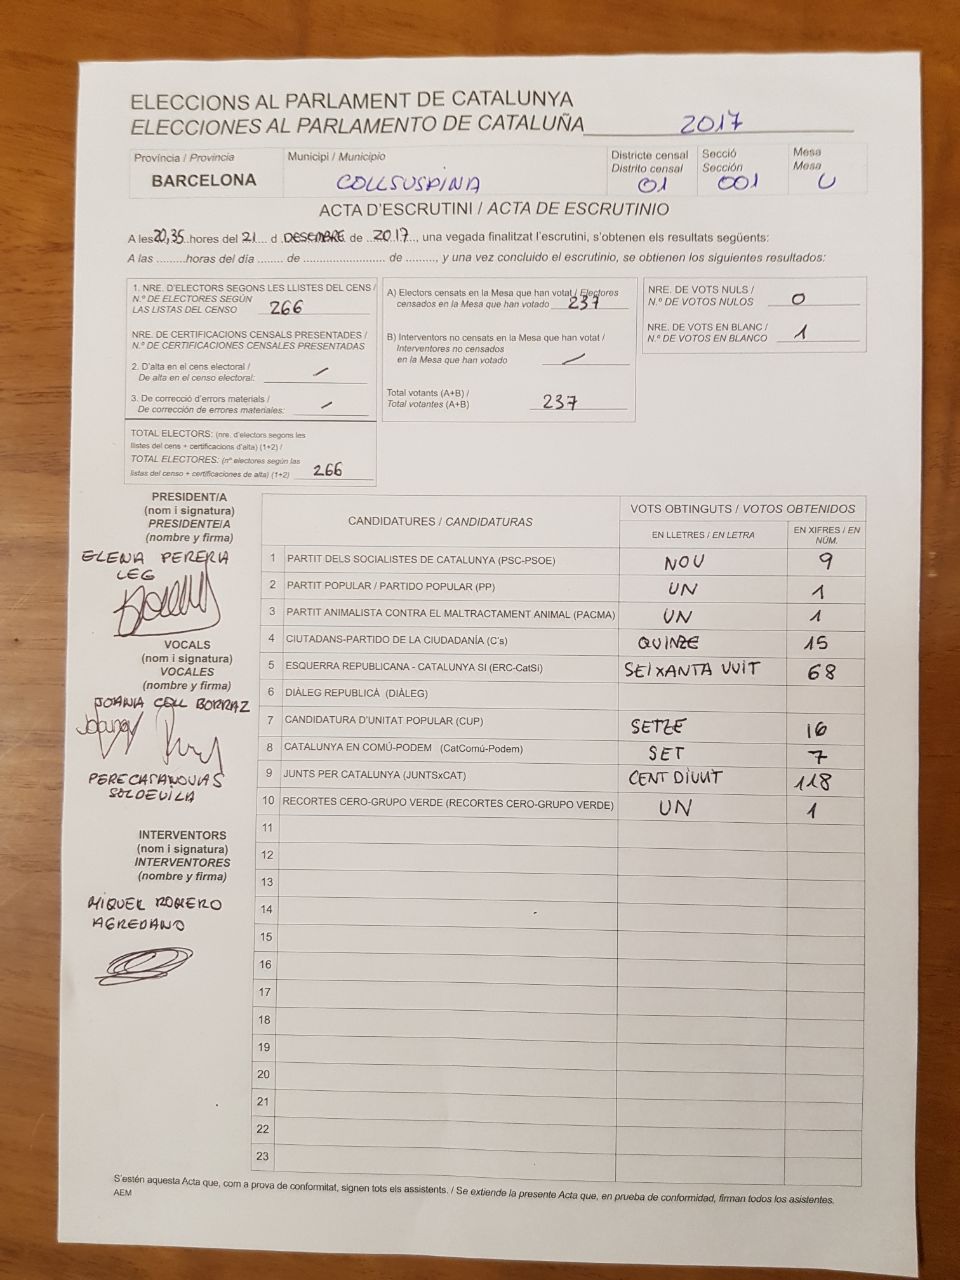 ELECCIONS AL PARLAMENT DE CATALUNYA
ELECCIONES AL PARLAMENTO DE CATALUÑA 2017
Província / Provincia Municipi / Municipio Districte censal Secció Mesa
Distrito censal Sección Mesa
BARCELONA COLLSUSPINA 01 001 U
ACTA D'ESCRUTINI / ACTA DE ESCRUTINIO
A les 20,35 hores del 21 d DESEMBRE de 2017, una vegada finalitzat l'escrutini, s'obtenen els resultats següents:
A las .........horas del día ....... de ........................ de ........, y una vez concluido el escrutinio, se obtienen los siguientes resultados:
1. NRE. D'ELECTORS SEGONS LES LLISTES DEL CENS /
N.º DE ELECTORES SEGÚN
LAS LISTAS DEL CENSO 266
NRE. DE CERTIFICACIONS CENSALS PRESENTADES /
N.º DE CERTIFICACIONES CENSALES PRESENTADAS
2. D'alta en el cens electoral /
De alta en el censo electoral: /
3. De correcció d'errors materials /
De corrección de errores materiales: /
TOTAL ELECTORS: (nre. d'electors segons les
llistes del cens + certificacions d'alta) (1+2) /
TOTAL ELECTORES: (nº electores según las
listas del censo + certificaciones de alta) (1+2) 266
A) Electors censats en la Mesa que han votat / Electores
censados en la Mesa que han votado 237
B) Interventors no censats en la Mesa que han votat /
Interventores no censados
en la Mesa que han votado /
Total votants (A+B) /
Total votantes (A+B) 237
NRE. DE VOTS NULS /
N.º DE VOTOS NULOS 0
NRE. DE VOTS EN BLANC /
N.º DE VOTOS EN BLANCO 1
PRESIDENT/A
(nom i signatura)
PRESIDENTE/A
(nombre y firma)
ELENA PERERIA
LEG
VOCALS
(nom i signatura)
VOCALES
(nombre y firma)
JOANA COLL BORRAZ
PERE CASANOVAS
SOLDEVILA
INTERVENTORS
(nom i signatura)
INTERVENTORES
(nombre y firma)
MIQUEL ROMERO
AGREDANO
CANDIDATURES / CANDIDATURAS VOTS OBTINGUTS / VOTOS OBTENIDOS
EN LLETRES / EN LETRA EN XIFRES / EN
NÚM.
1 PARTIT DELS SOCIALISTES DE CATALUNYA (PSC-PSOE) NOU 9
2 PARTIT POPULAR / PARTIDO POPULAR (PP) UN 1
3 PARTIT ANIMALISTA CONTRA EL MALTRACTAMENT ANIMAL (PACMA) UN 1
4 CIUTADANS-PARTIDO DE LA CIUDADANÍA (C's) QUINZE 15
5 ESQUERRA REPUBLICANA - CATALUNYA SI (ERC-CatSí) SEIXANTA VUIT 68
6 DIÀLEG REPUBLICÀ (DIÀLEG)
7 CANDIDATURA D'UNITAT POPULAR (CUP) SETZE 16
8 CATALUNYA EN COMÚ-PODEM (CatComú-Podem) SET 7
9 JUNTS PER CATALUNYA (JUNTSxCAT) CENT DIVUIT 118
10 RECORTES CERO-GRUPO VERDE (RECORTES CERO-GRUPO VERDE) UN 1
11
12
13
14
15
16
17
18
19
20
21
22
23
S'estén aquesta Acta que, com a prova de conformitat, signen tots els assistents. / Se extiende la presente Acta que, en prueba de conformidad, firman todos los asistentes.
AEM